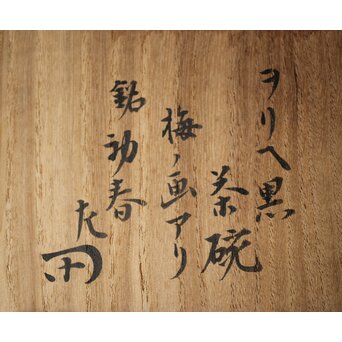 ヲリヘ黒
茶碗
梅ノ画アリ
銘初春
左